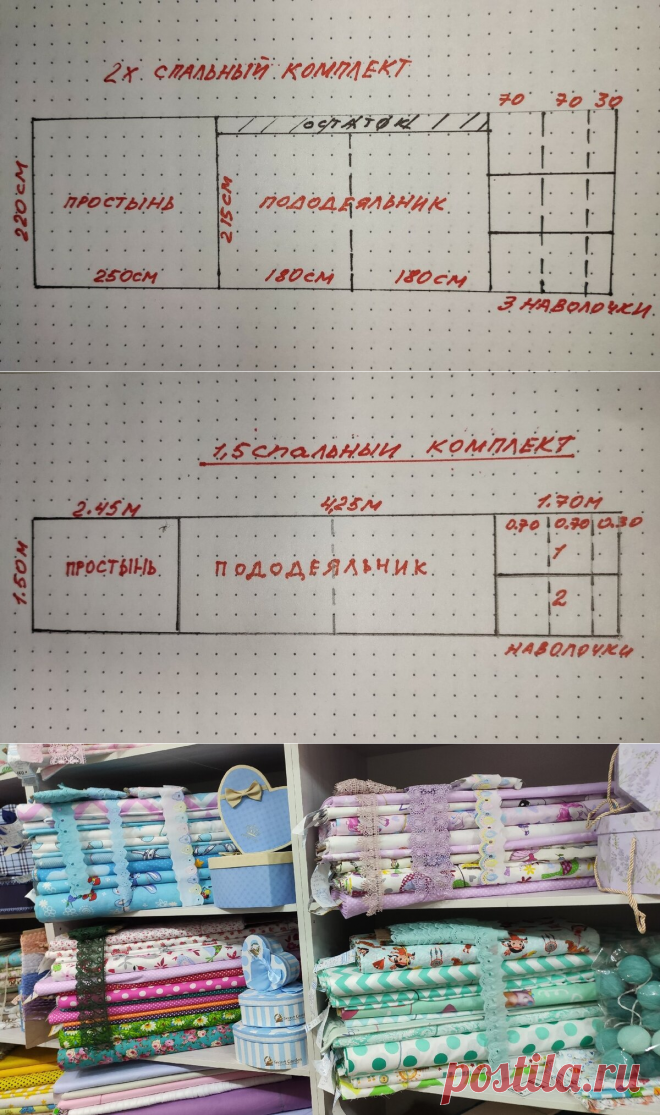 2х СПАЛЬНЫЙ КОМПЛЕКТ
70 70 30
ОСТАТОК
220СМ
ПРОСТЫНЬ
215СМ
ПОДОДЕЯЛЬНИК
250СМ
180СМ
180СМ
3 НАВОЛОЧКИ.
1,5 спальный комплект
2.45М
4,25 М
1.70М
0.70 0.70 0.30
1.50М
ПРОСТЫНЬ
ПОДОДЕЯЛЬНИК
1
2
НАВОЛОЧКИ
postila.ru